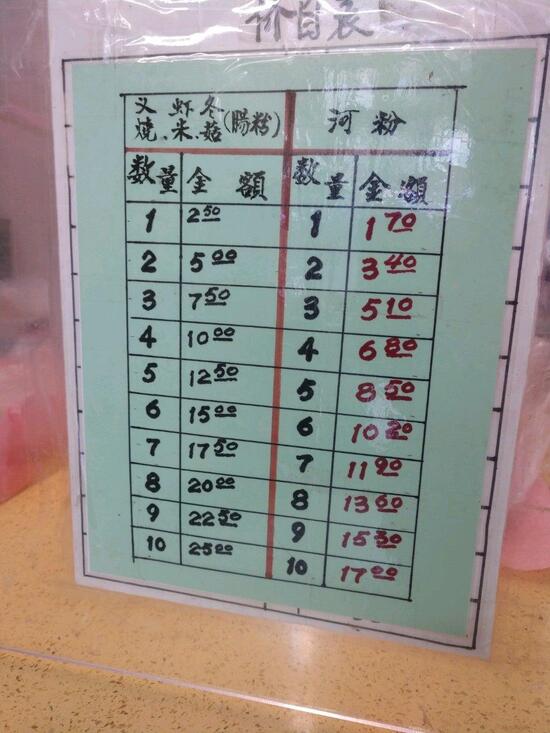 价目表
叉燒、虾米、冬菇(腸粉) 河粉
数量 金額 数量 金額
1 2.50 1 1.70
2 5.00 2 3.40
3 7.50 3 5.10
4 10.00 4 6.80
5 12.50 5 8.50
6 15.00 6 10.20
7 17.50 7 11.90
8 20.00 8 13.60
9 22.50 9 15.30
10 25.00 10 17.00